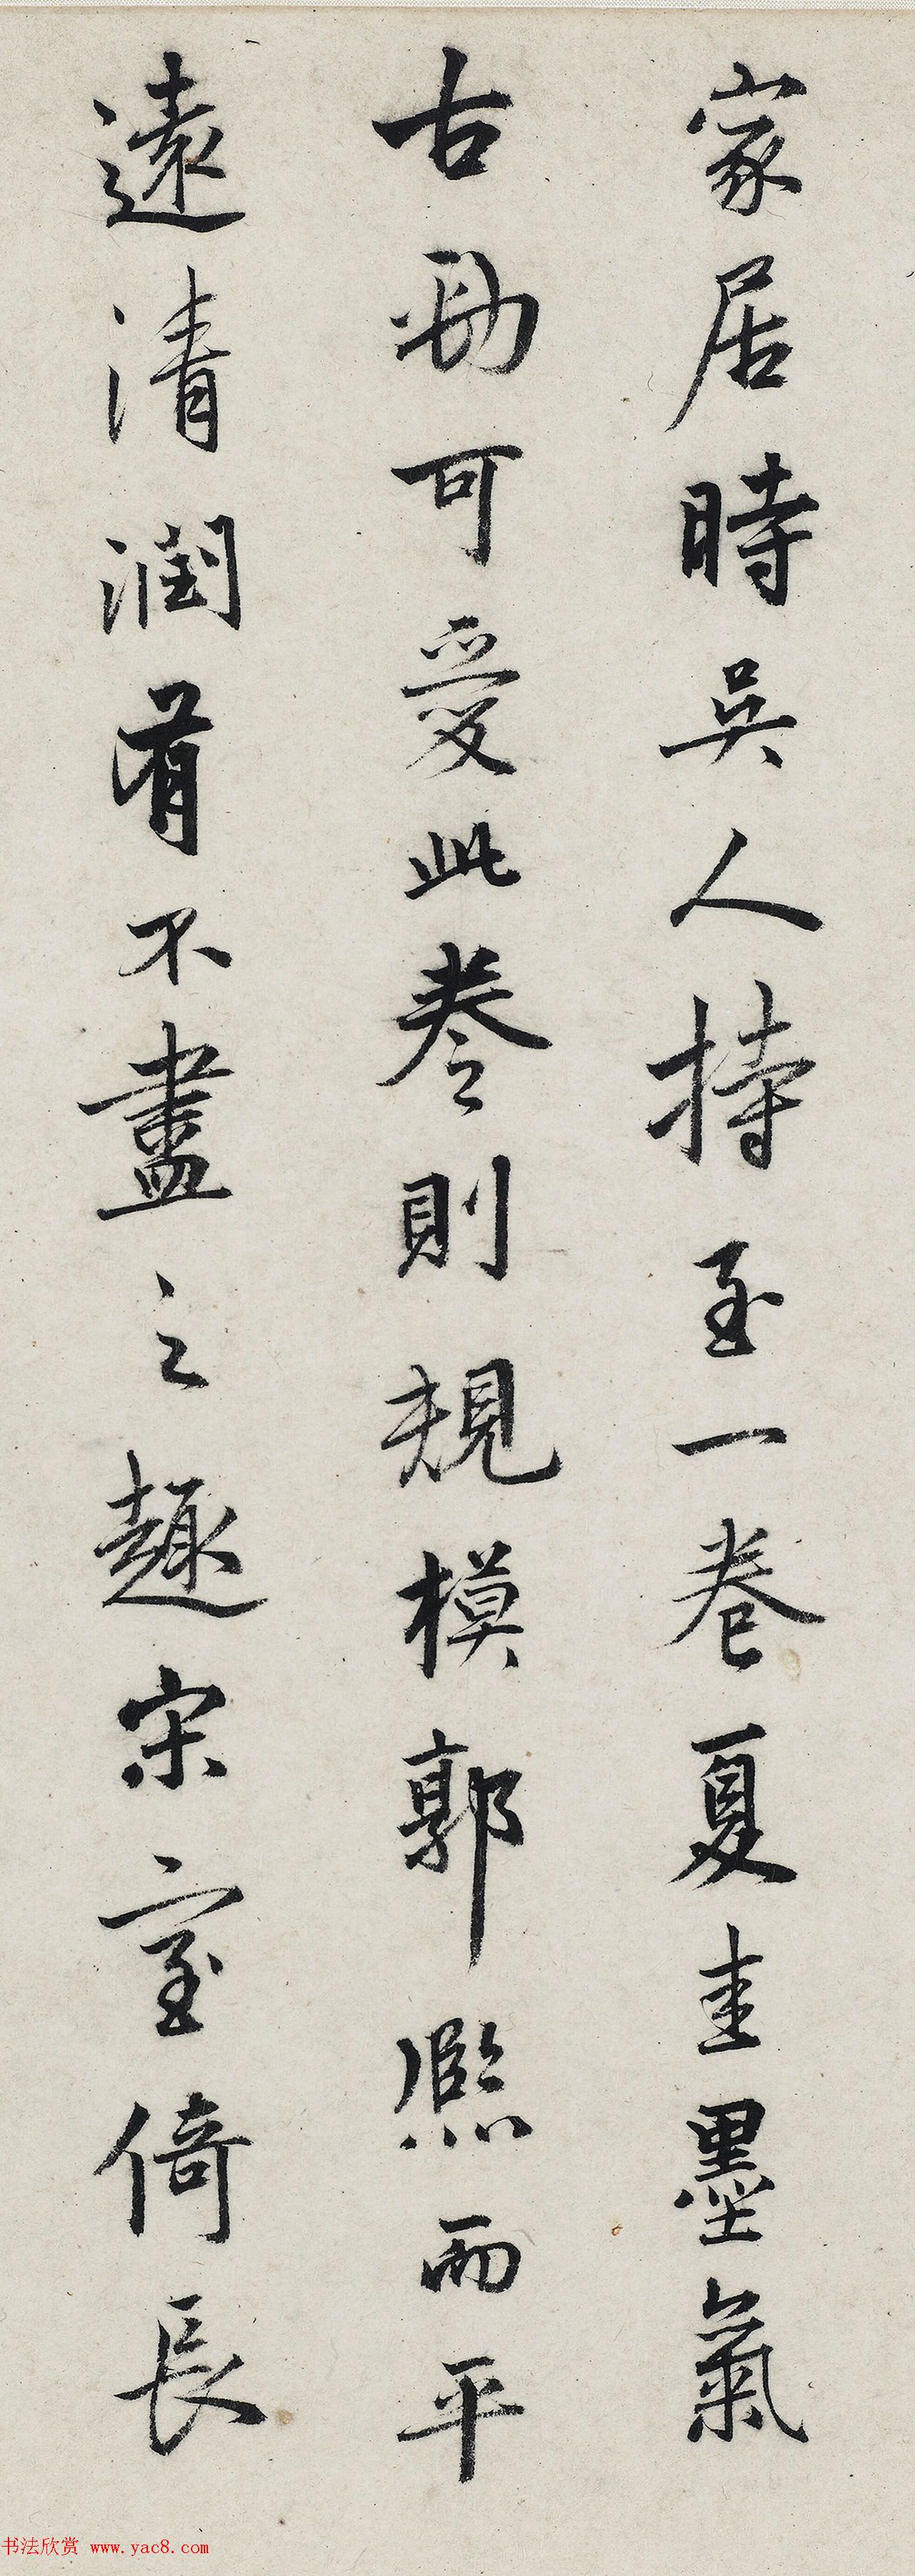 家居時吳人持至一卷夏圭墨氣
古勁可愛此卷則規模郭熈而平
遠清潤有不盡之趣宋室倚長
书法欣赏 www.yac8.com